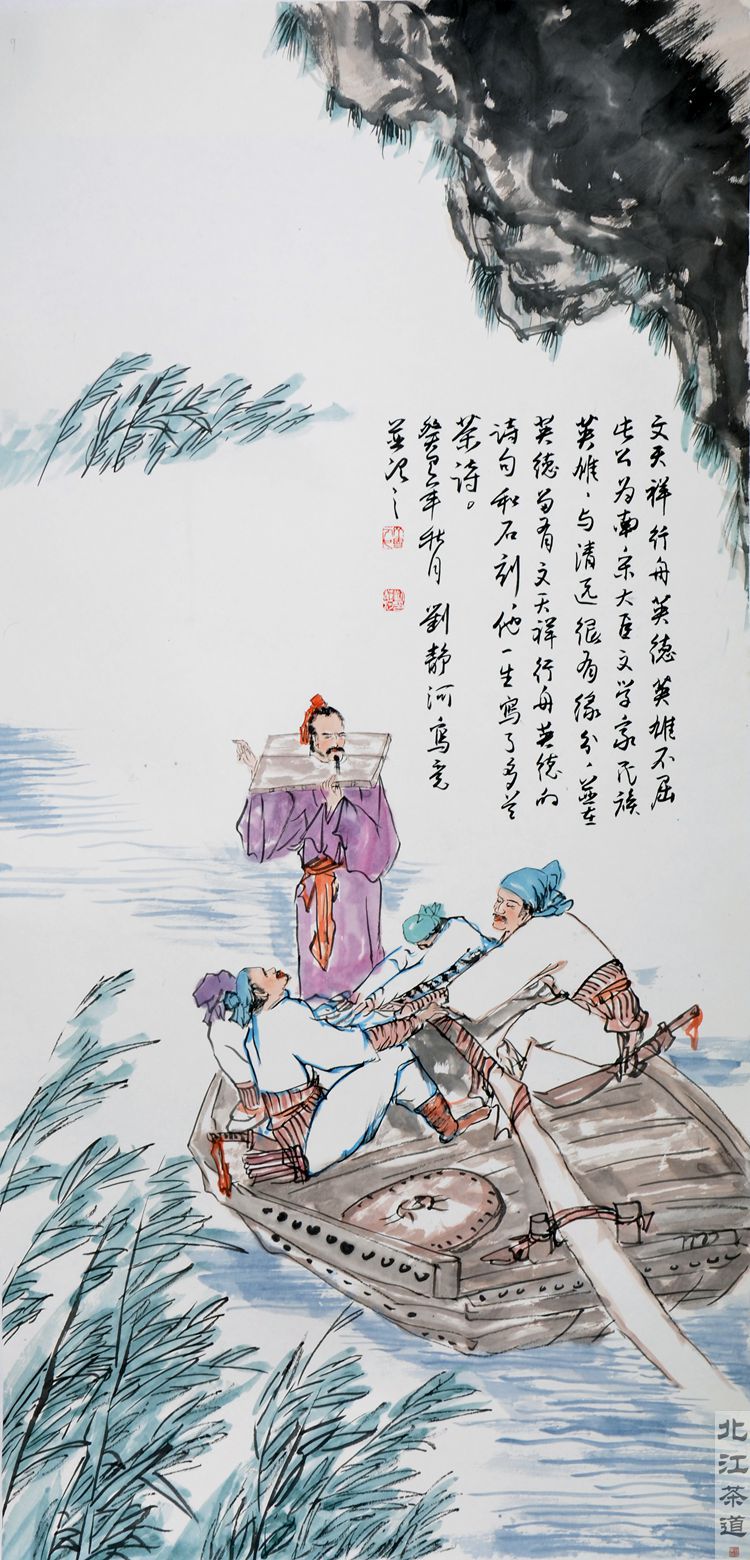 文天祥行舟英德英雄不屈
生公为南宋大臣文学家民族
英雄、与清远很有缘分、並在
英德留有文天祥行舟英德的
诗句和石刻、他一生写了多首
茶诗。
癸卯年秋月 劉静河寫意
並识之
北江茶道